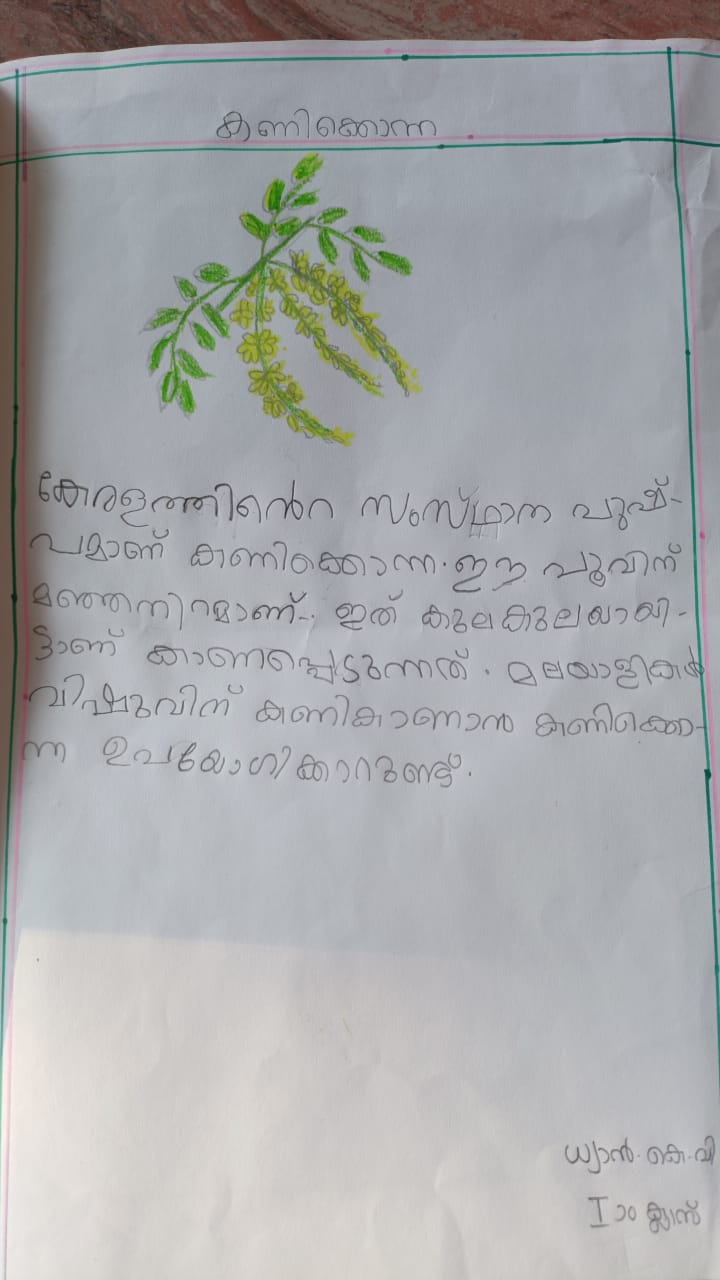 കണിക്കൊന്ന
കേരളത്തിൻെറ സംസ്ഥാന പുഷ്-
പമാണ് കണിക്കൊന്ന. ഈ പൂവിന്
മഞ്ഞനിറമാണ്. ഇത് കുലകുലയായി-
ട്ടാണ് കാണപ്പെടുന്നത്. മലയാളികൾ
വിഷുവിന് കണികാണാൻ കണിക്കൊ-
ന്ന ഉപയോഗിക്കാറുണ്ട്.
ധ്യാൻ. കെ. വി
I ാം ക്ലാസ്